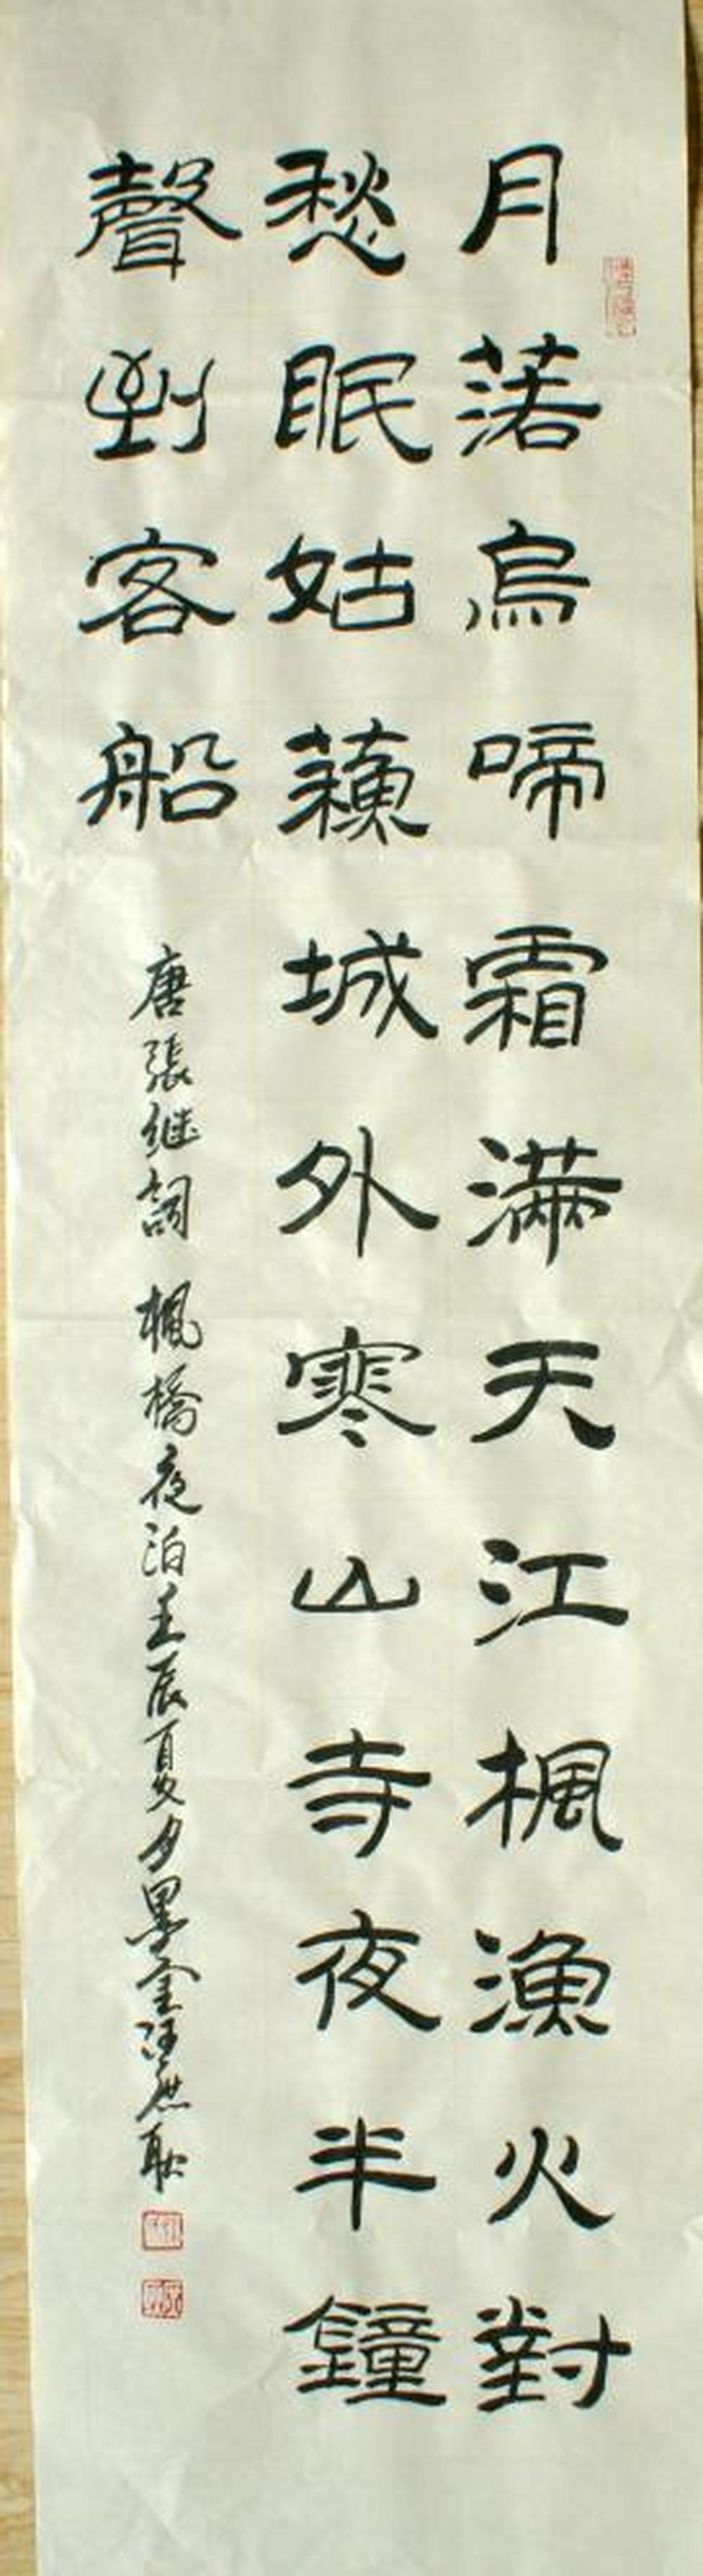 月落烏啼霜滿天江楓漁火對
愁眠姑蘇城外寒山寺夜半鐘
聲到客船
唐張继詞 楓橋夜泊壬辰夏夕墨